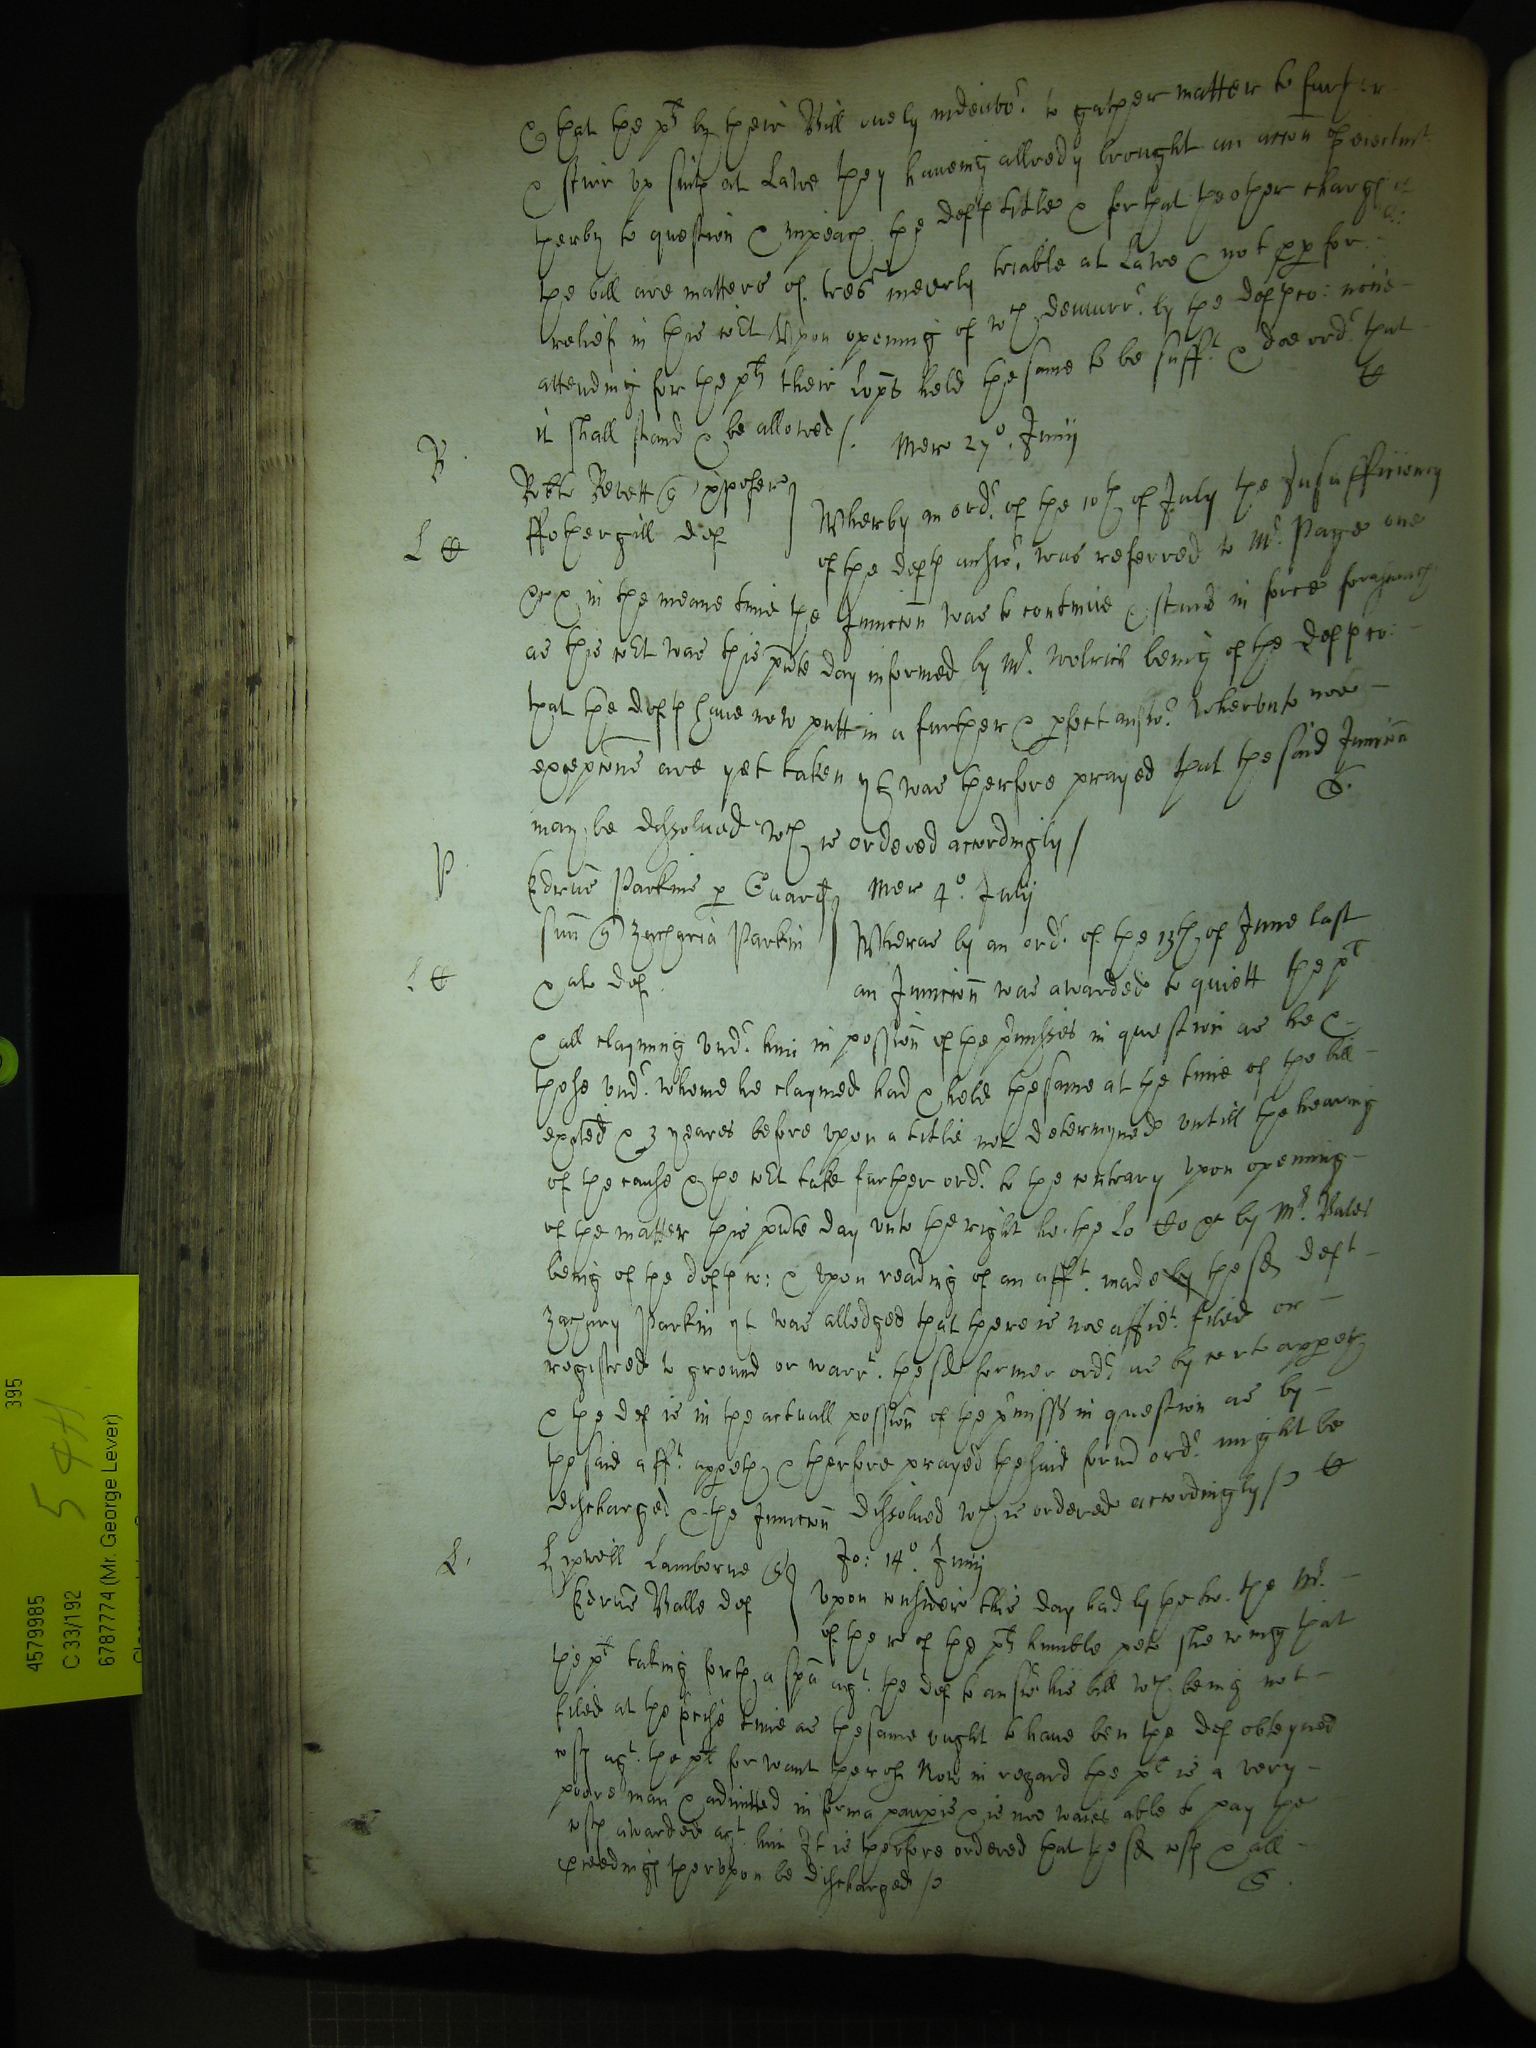 & that the plts by their Bill onely indeavor to gather matter to further
& stirr up suits at Lawe they haveing allredy brought an accon of eiectmt
therby to question & impeach the defts title & for that the other charges of
the bill are matters of tres merly triable at Lawe & not pper for
relief in this Cort Upon opening of wch demurr by the defts co: none
attending for the plts their Lopps held the same to be sufft & doe ordr that
it shall stand & be allowed /. Mer 27o. Junij
R.
Robte Revett q Xpofer
ffothergill def
Wherby in ordr of the 10th of July the Insufficiency
L
of the defts answr was referred to Mr. Page one
&c & in the meane time the Iniuncon was to continue & stand in force forasmuch
as this Cort was this pnte day informed by Mr. Wolrich being of the defts co:
that the defts have now putt in a further & pfect answr Wherunto noe
excepcons are yet taken yt was therfore prayed that the said Iniuncon
may be dissolved wch is ordered accordingly /
P.
Edrus Parkins p Guard
Mer 4o. Julij
suu q Zacharia Parkin
Wheras by an ordr of the 13th of June last
L
& al def.
an Iniuncon was awarded to quiett the plt
& all clayming undr him in possion of the pmisses in question as he &
those undr whome he claymed had & held the same at the time of the bill
exhted & 3 yeares before upon a title not determyned untill the hearing
of the cause & the Cort take further ordr to the contrary Upon opening
of the matter this pnte day unto the right ho. the Lo &c by Mr. Bales
being of the defts co: & upon reading of an afft. made by the sd deft
Zachary Parkin yt was alledged that there is noe affidt. filed or
registred to ground or warrt. the sd former ordr as by cert appeth
& the def is in the actuall possion of the pmisss in question as by
the said afft. appeth & therfore prayed the said former ordr might be
discharged & the Iniuncon dissolved wch is ordered accordingly /
L.
Lamborne q
Jo: 14o. Junij
Edrus Balle def
Upon considr this day had by the ho. the Mr.
of the Ro of the plts humble peto shewing that
the plt taking forth a spa agt. the def to answr his bill wch being not
filed at the pcise time as the same ought to have ben the def obteyned
costs agt. the plt for want therof Now in regard the plt is a very
poore man & admitted in forma paupis & is noe waies able to pay the
costs awarded agt. him It is therfore ordered that the sd costs & all
pceedings therupon be discharged /
395
5 4H
4579985
C 33/192
6787774 (Mr. George Lever)